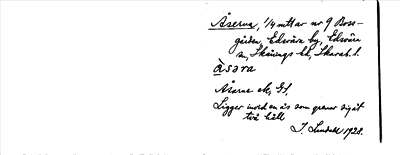 Åserna, 1/4 mtl av nr 9 Boss-
gården, Edsvära by, Edsvära
sn, Skånings hd, Skarab. l.
àsəra
Åsarna
Ligger invid en ås som grenar sig åt
två håll
J. Lundahl 1928.